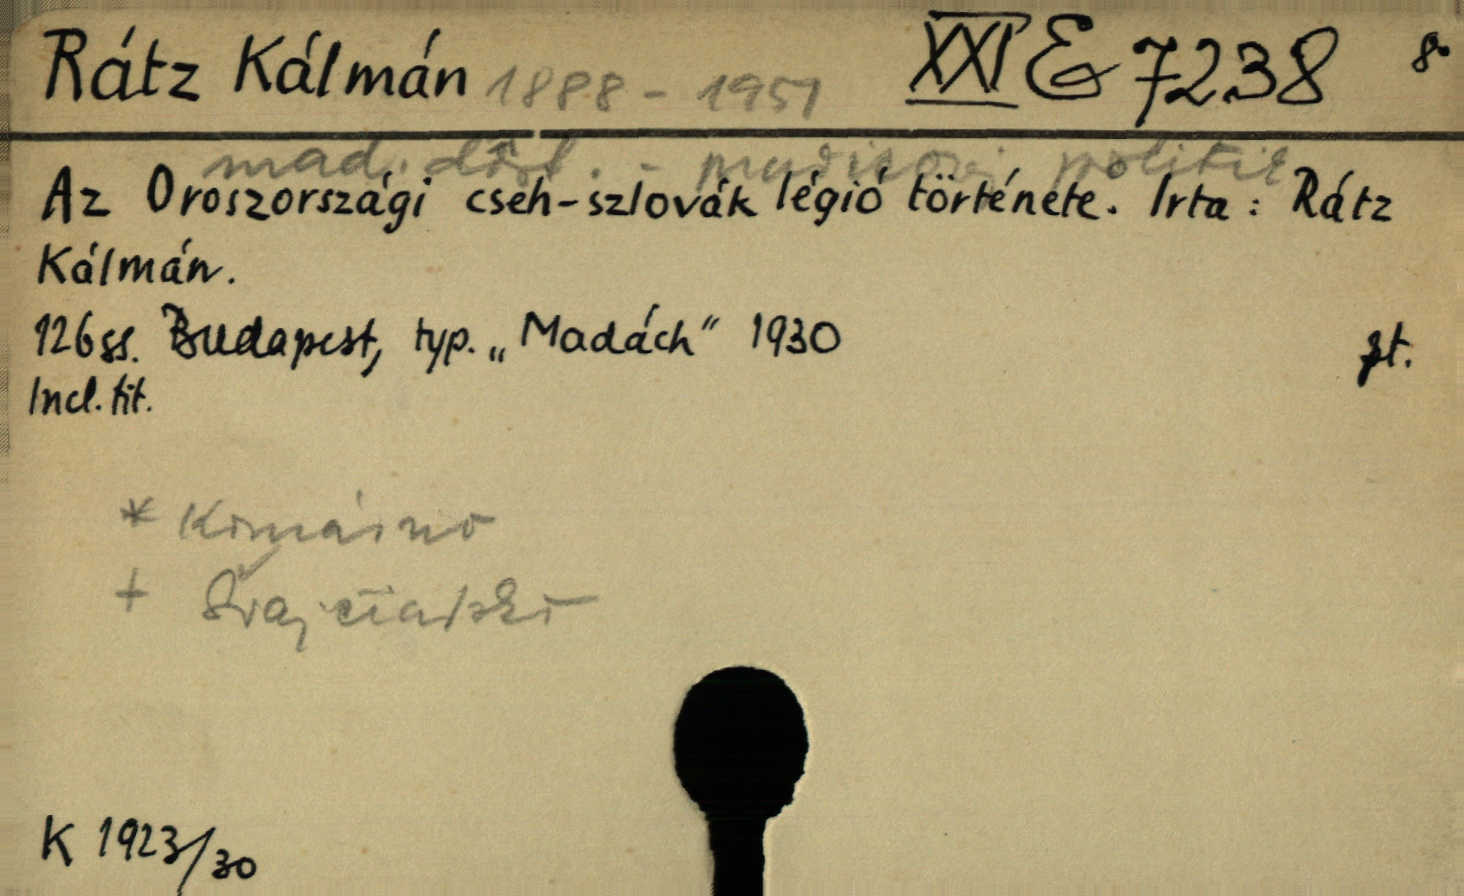 Rátz Kálmán 1888 - 1951 XXI E 7238 8°
mad. dôst. - politik
Az Oroszországi cseh-szlovák légió története. Irta: Rátz
Kálmán.
126 ss. Budapest, typ. „Madách" 1930
Incl. tit.
* Komárno
+ Švajčiarsko
K 1923/30